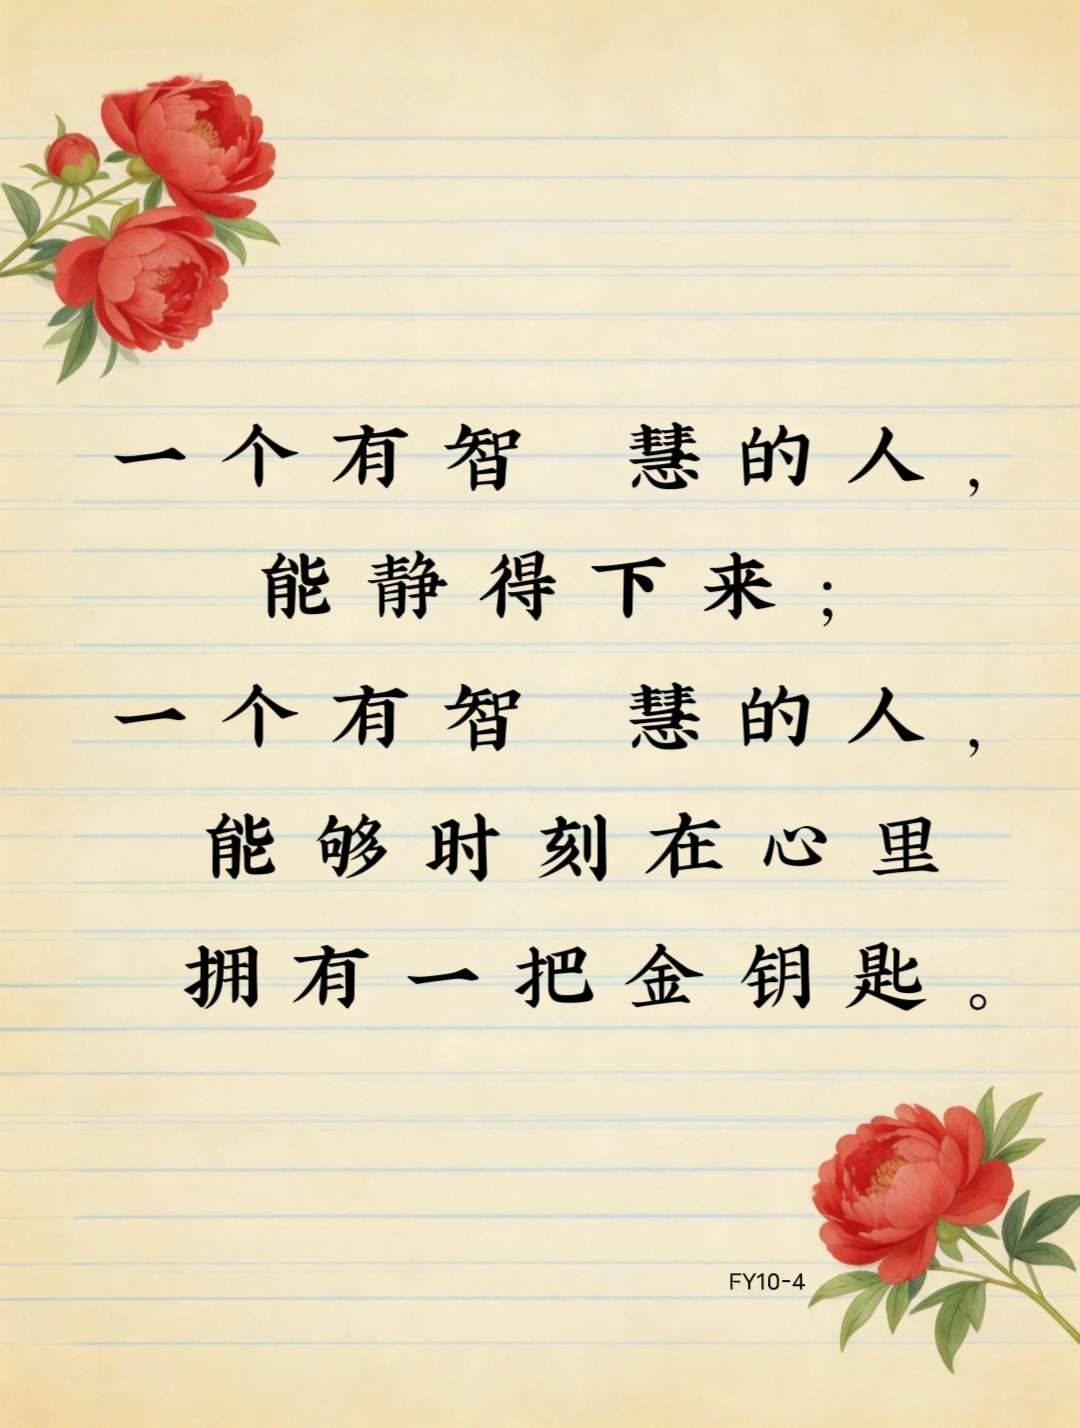 一个有智 慧的人，
能静得下来；
一个有智 慧的人，
能够时刻在心里
拥有一把金钥匙。
FY10-4